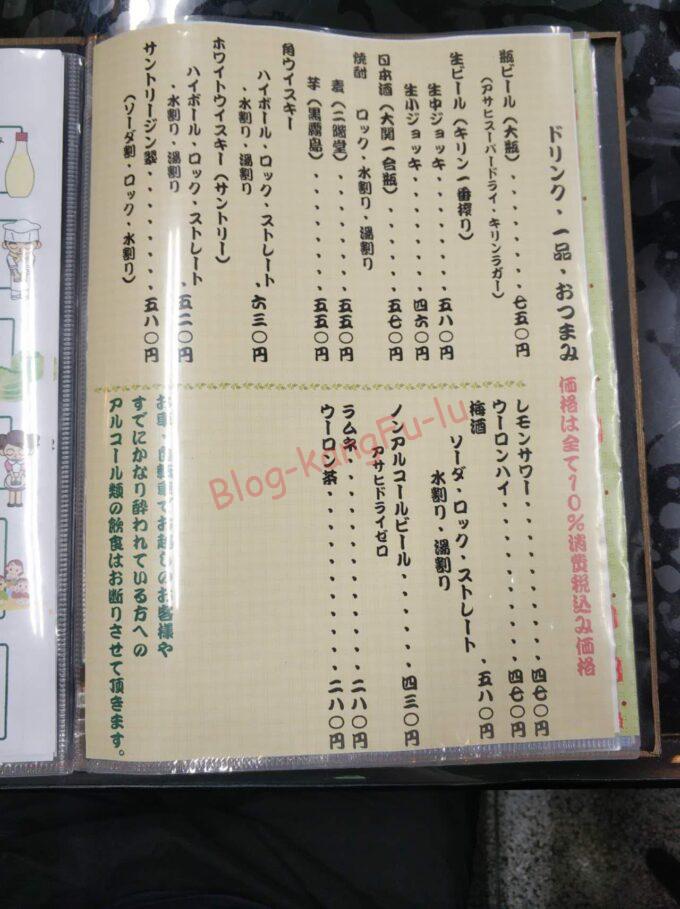 ドリンク・一品・おつまみ
価格は全て10%消費税込み価格
瓶ビール(大瓶)・・・・・・・・七五〇円
(アサヒスーパードライ・キリンラガー)
生ビール(キリン一番搾り)
生中ジョッキ・・・・・・・五八〇円
生小ジョッキ・・・・・・・四六〇円
日本酒(大関一合瓶)・・・・五七〇円
焼酎 ロック・水割り・湯割り
麦(二階堂)・・・・・・・五五〇円
芋(黒霧島)・・・・・・・五五〇円
角ウイスキー
ハイボール・ロック・ストレート
・水割り・湯割り・六三〇円
ホワイトウイスキー(サントリー)
ハイボール・ロック・ストレート
・水割り・湯割り・五二〇円
サントリージン翠・・・・・・・五八〇円
(ソーダ割・ロック・水割り)
レモンサワー・・・・・・・・・四七〇円
ウーロンハイ・・・・・・・・・四七〇円
梅酒
ソーダ・ロック・ストレート
水割り・湯割り・五八〇円
ノンアルコールビール・・・・・・四三〇円
アサヒドライゼロ
ラムネ・・・・・・・・・・・・二八〇円
ウーロン茶・・・・・・・・・・二八〇円
お車・自転車でお越しのお客様や
すでにかなり酔われている方への
アルコール類の飲食はお断りさせて頂きます。
Blog-kangFu-lu